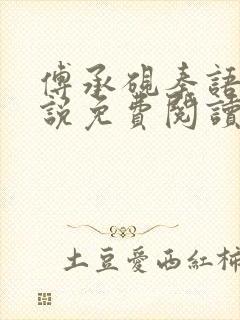 傅承硯秦語
說免費閱讀
土豆愛西紅柿